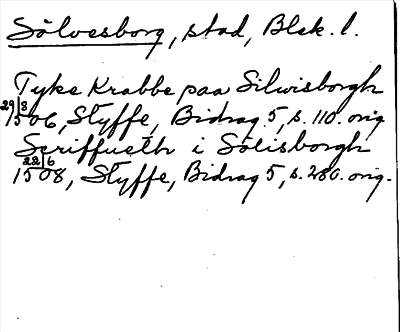 Sölvesborg, stad, Blek. l.
Tyke Krabbe paa Silwisborgh
29/8 1506, Styffe, Bidrag 5, s. 110. orig
Scriffueth i Sölisborgh
22/6 1508, Styffe, Bidrag 5, s. 280. orig.